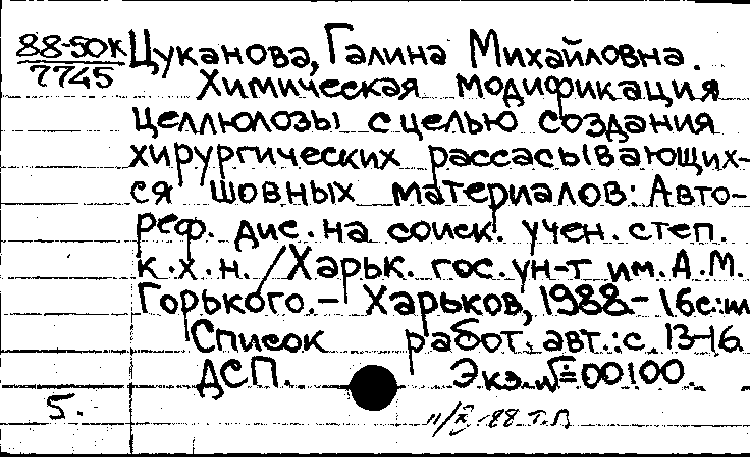 88-50к Цуканова, Галина Михайловна.
7745 Химическая модификация
целлюлозы с целью создания
хирургических рассасывающих-
ся шовных материалов: Авто-
реф. дис. на соиск. учен. степ.
к.х.н. / Харьк. гос. ун-т им. А.М.
Горького. – Харьков, 1988. – 16с.:ил
Список работ. авт.: с. 13-16.
ДСП. Экз. № 00100.
5.
88 Т.П